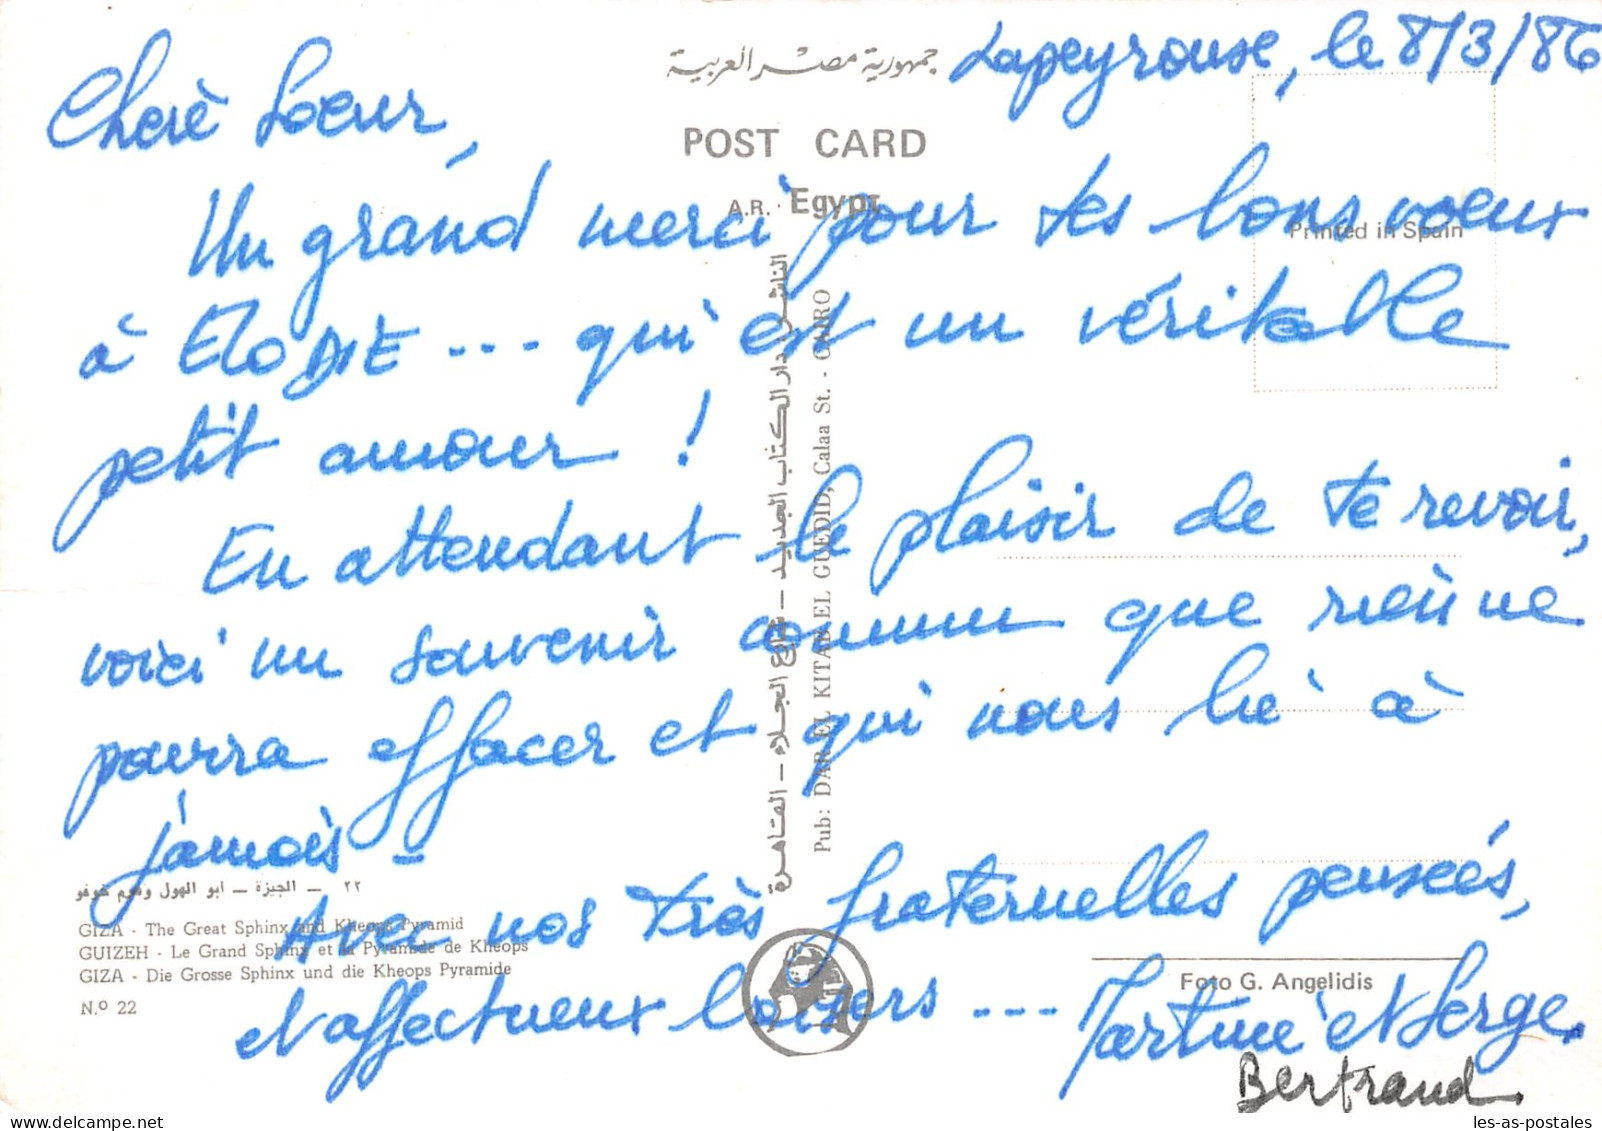 Lapeyrouse, le 8/3/86
جمهورية مصر العربية
POST CARD
A.R. Egypt
Printed in Spain
Chère Soeur,
Un grand merci pour tes bons voeux
à ELODIE --- qui est un véritable
petit amour !
En attendant le plaisir de te revoir,
voici un souvenir commun que rien ne
pourra effacer et qui nous lie à
jamais -
Avec nos très fraternelles pensées,
et affectueux baisers --- Martine et Serge.
Bertrand.
الناشر دار الكتاب الجديد – شارع الجلاء – القاهرة
Pub: DAR EL KITAB EL GUEDID, Calaa St. - CAIRO
٢٢ – الجيزة – ابو الهول وهرم خوفو
GIZA - The Great Sphinx and Kheops Pyramid
GUIZEH - Le Grand Sphinx et la Pyramide de Kheops
GIZA - Die Grosse Sphinx und die Kheops Pyramide
N.º 22
Foto G. Angelidis
les-as-postales